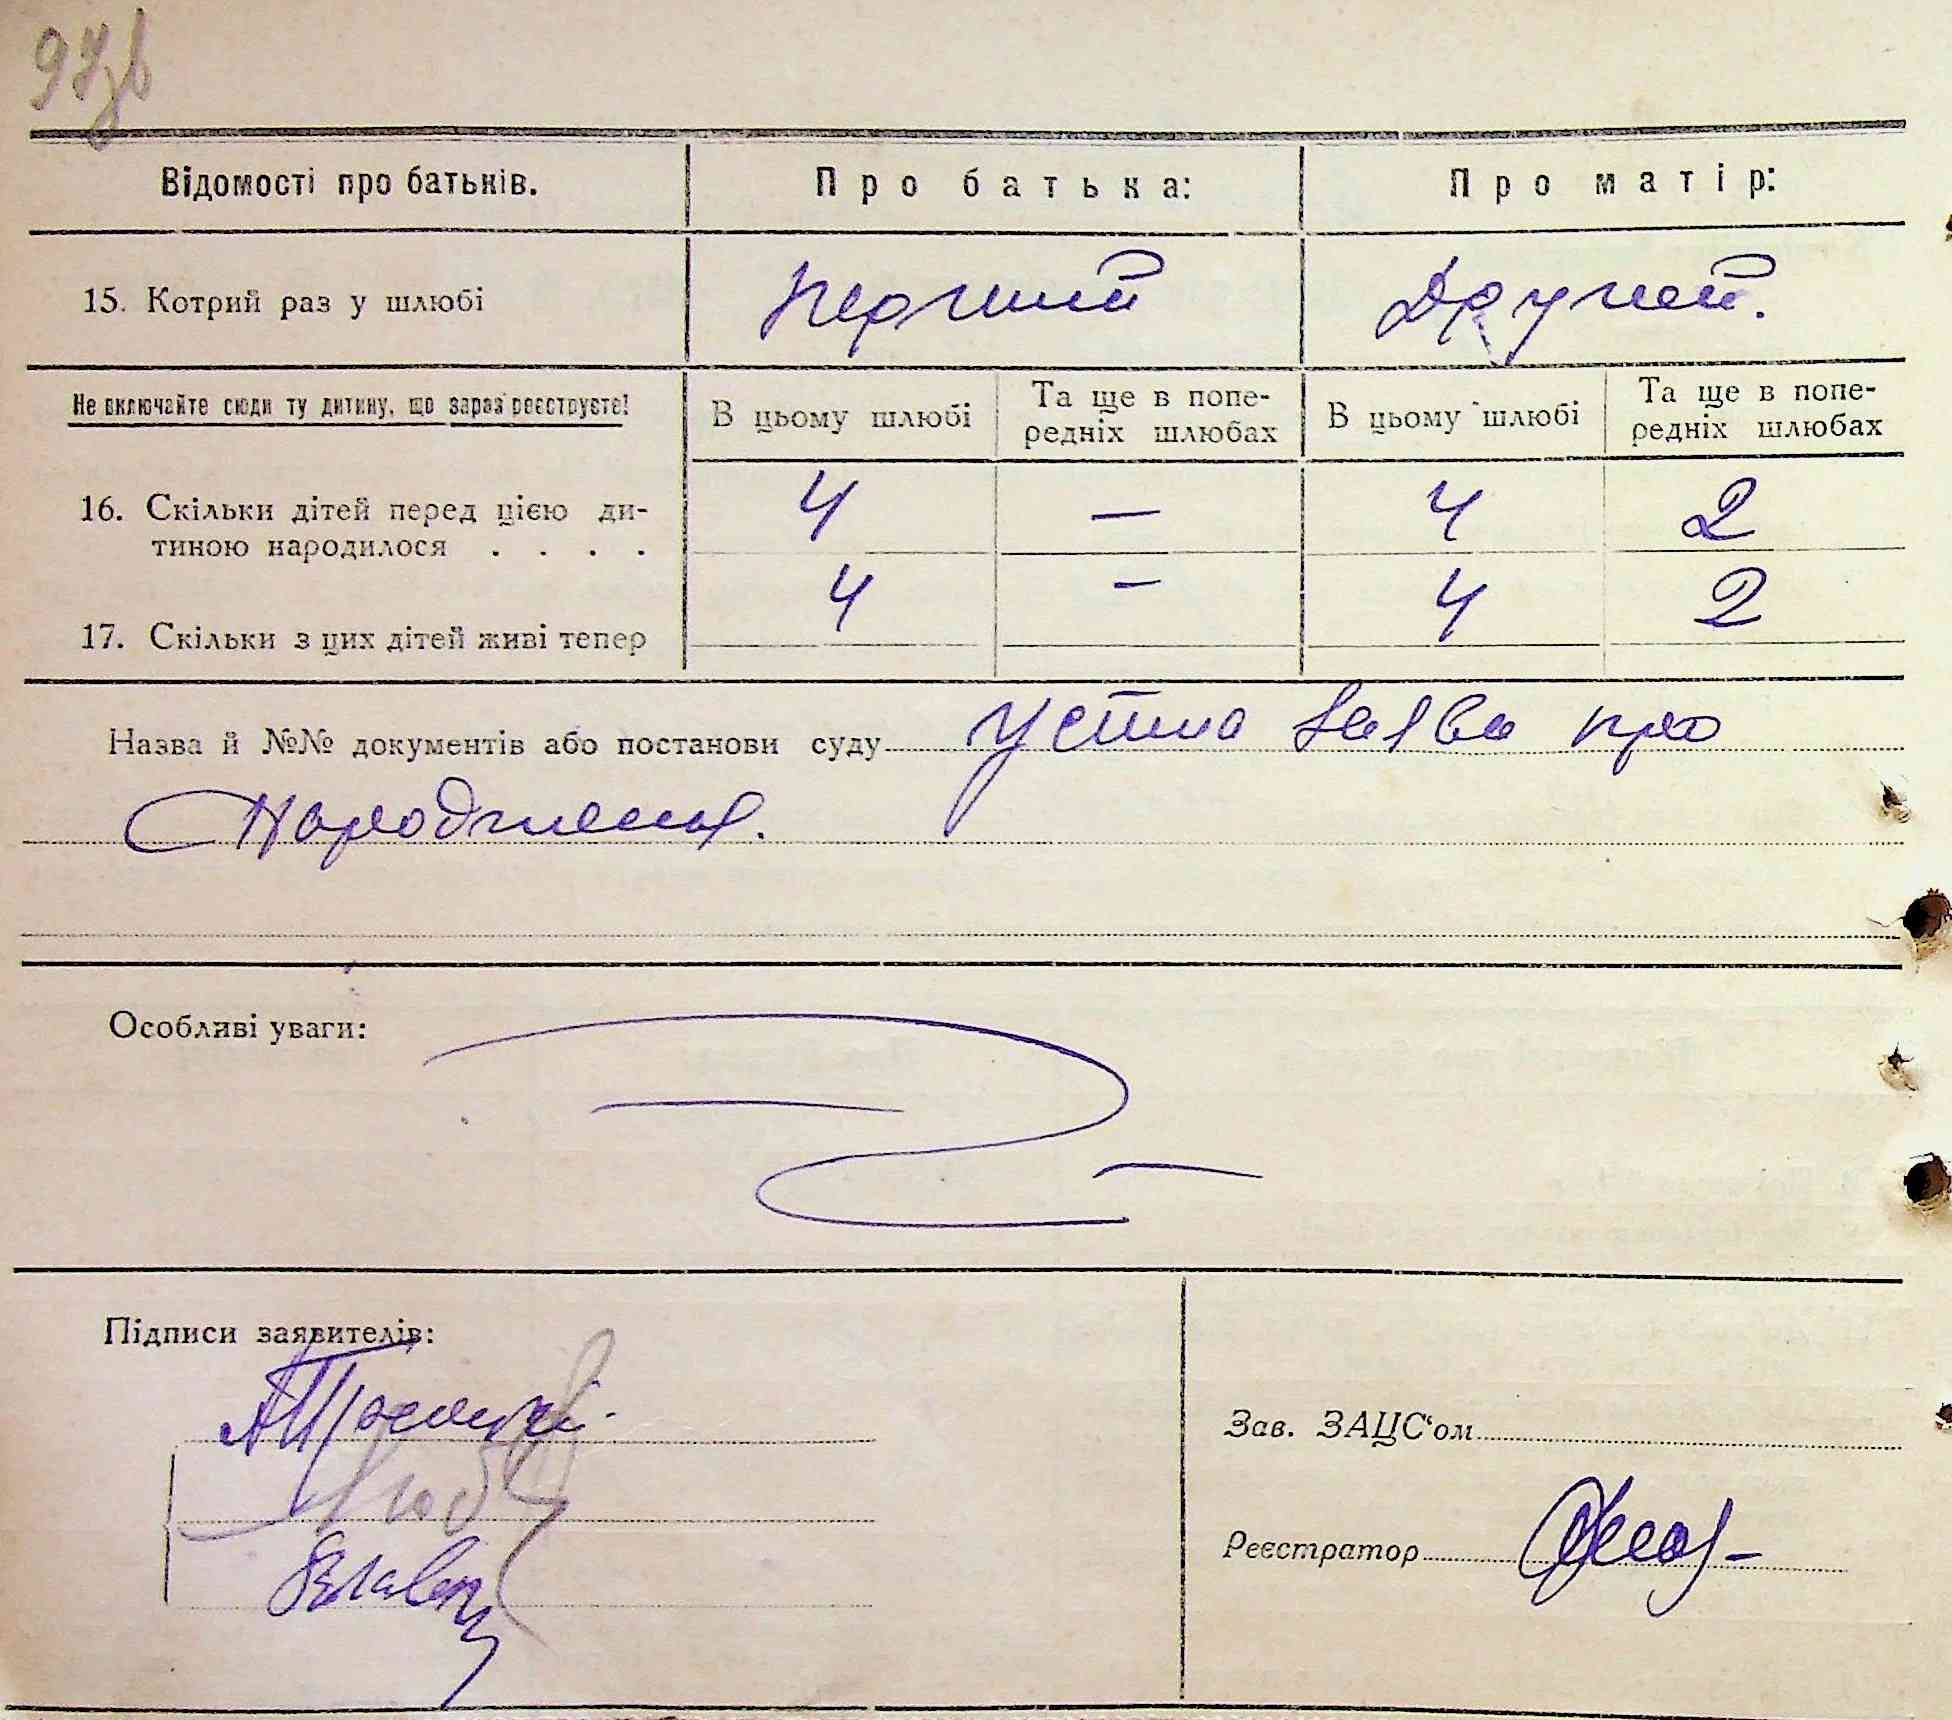 97зв
Відомості про батьків. Про батька: Про матір:
15. Котрий раз у шлюбі перший Другий.
Не включайте сюди ту дитину, що зараз реєструєте! В цьому шлюбі Та ще в попе-
редніх шлюбах В цьому шлюбі Та ще в попе-
редніх шлюбах
16. Скільки дітей перед цією ди-
тиною народилося . . . . 4 — 4 2
17. Скільки з цих дітей живі тепер 4 — 4 2
Назва й №№ документів або постанови суду устна заява про
народження.
Особливі уваги:
Підписи заявителів:
Зав. ЗАЦС'ом
Реєстратор